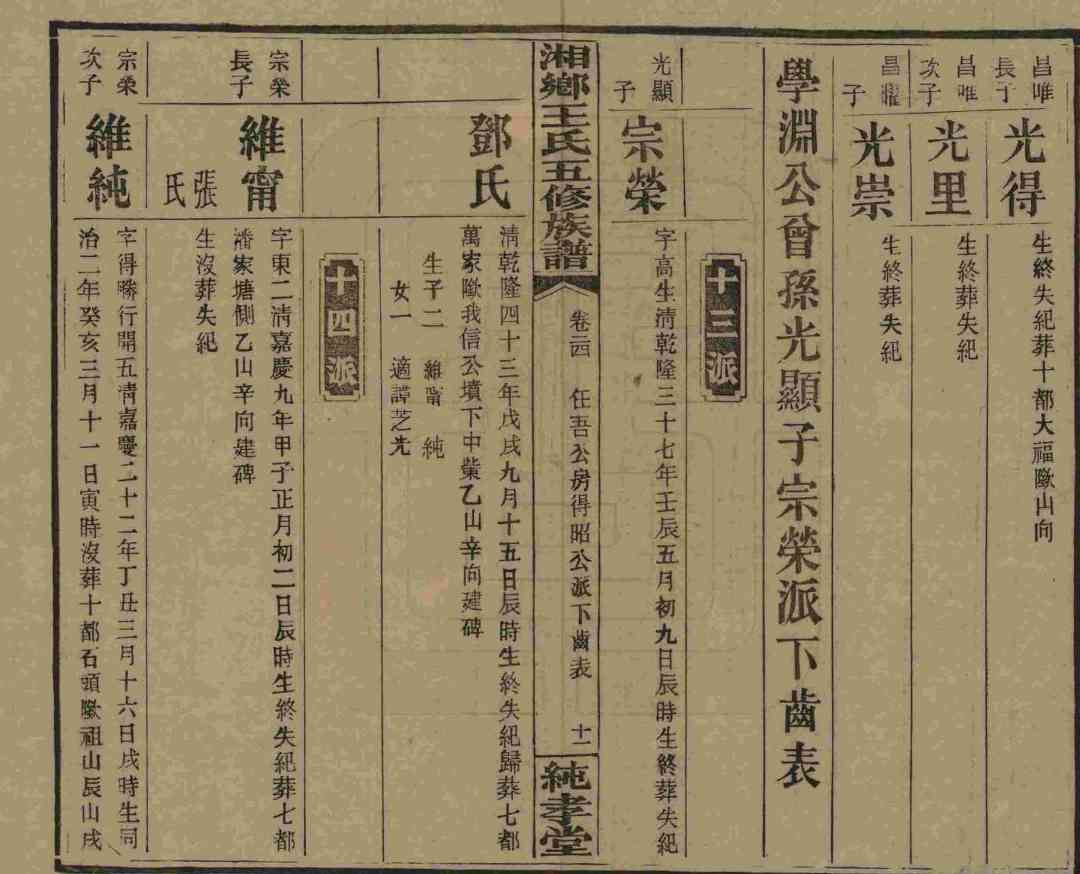 昌唯長子
光得
生終失紀葬十都大福歐山向
昌唯次子
光里
生終葬失紀
昌燿子
光崇
生終葬失紀
學淵公曾孫光顯子宗榮派下齒表
十三派
光顯子
宗榮
字高生淸乾隆三十七年壬辰五月初九日辰時生終葬失紀
湘鄉王氏五修族譜
卷二四 任吾公房得昭公派下齒表 十一
純孝堂
鄧氏
淸乾隆四十三年戊戌九月十五日辰時生終失紀歸葬七都
萬家歐我信公墳下中塋乙山辛向建碑
生子二 維甯 純
女一 適譚芝先
十四派
宗榮長子
維甯
字東二淸嘉慶九年甲子正月初二日辰時生終失紀葬七都
潘家塘側乙山辛向建碑
張氏
生沒葬失紀
宗榮次子
維純
字得勝行開五淸嘉慶二十二年丁丑三月十六日戌時生同
治二年癸亥三月十一日寅時沒葬十都石頭歐祖山辰山戌